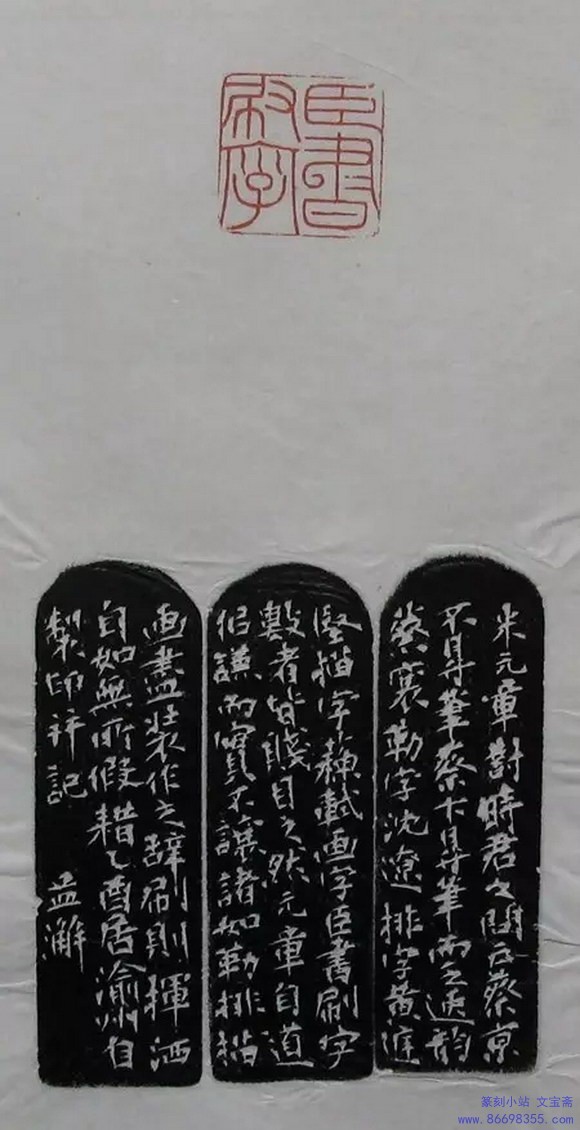 臣書
刷字
米元章對時君之問云蔡京
不得筆蔡卞得筆而乏逸韵
蔡襄勒字沈遼排字黃庭
堅描字蘇軾画字臣書刷字
數者皆賤目之然元章自道
佀謙而實不讓諸如勒排描
画盡裝作之辭刷則揮洒
自如無所假耤乙酉居渝州自
製印并記 益澥
篆刻小站 文宝斋
www.86698355.com